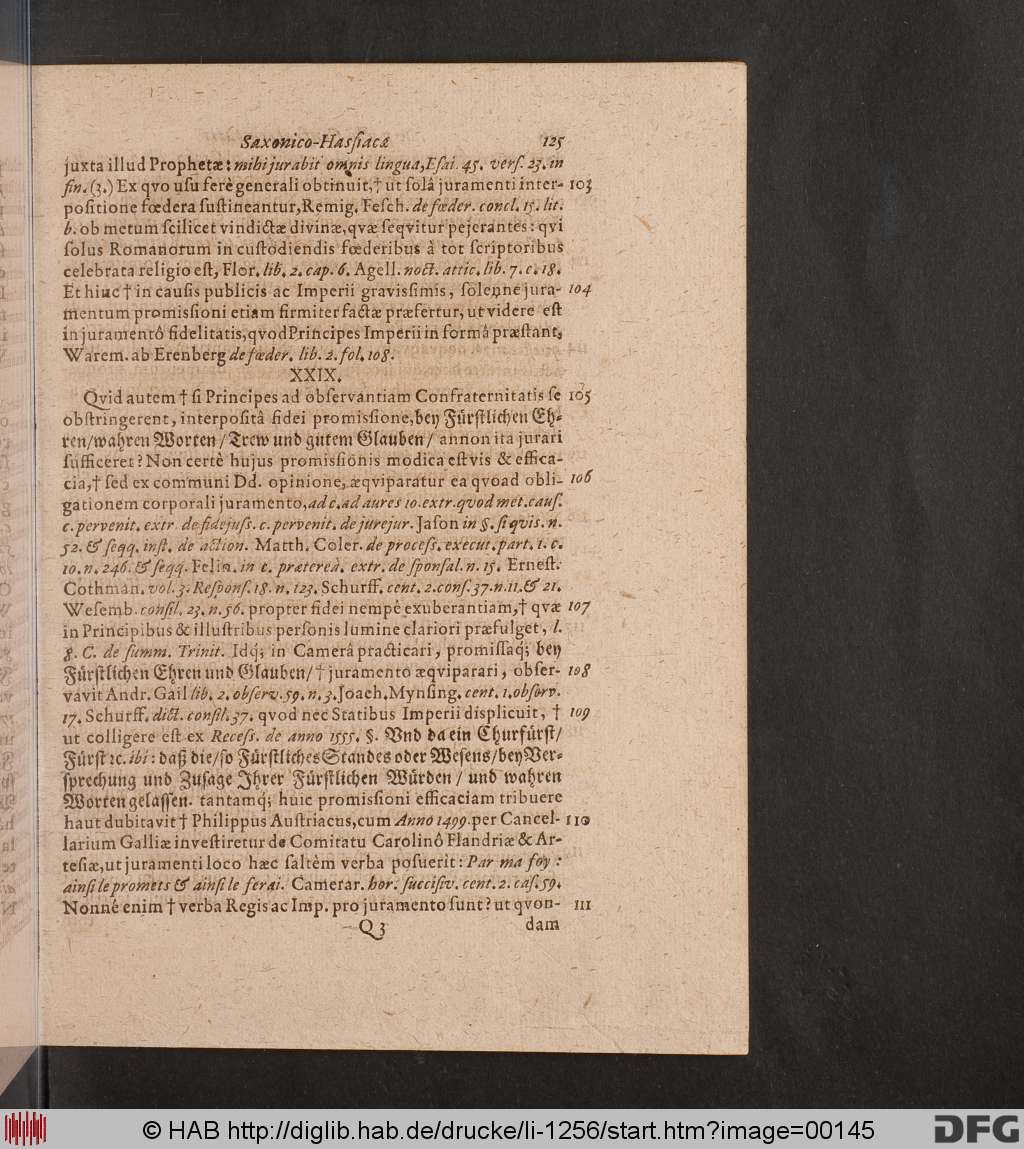 Saxonico-Hasſiacæ 125
juxta illud Prophetæ: mihi jurabit omnis lingua, Eſai. 45. verſ. 23. in
fin. (3.) Ex qvo uſu ferè generali obtinuit, † ut ſolâ juramenti inter- 103
poſitione fœdera ſuſtineantur, Remig. Feſch. de fœder. concl. 15. lit.
b. ob metum ſcilicet vindictæ divinæ, qvæ ſeqvitur pejerantes: qvi
ſolus Romanorum in cuſtodiendis fœderibus à tot ſcriptoribus
celebrata religio eſt, Flor. lib. 2. cap. 6. Agell. noct. attic. lib. 7. c. 18.
Et hinc † in cauſis publicis ac Imperii graviſſimis, ſolenne jura- 104
mentum promiſſioni etiam firmiter factæ præfertur, ut videre eſt
in juramentô fidelitatis, qvod Principes Imperii in formâ præſtant,
Warem. ab Erenberg de fœder. lib. 2. fol. 108.
XXIX.
Qvid autem † ſi Principes ad obſervantiam Confraternitatis ſe 105
obſtringerent, interpoſitâ fidei promiſſione, bey Fürſtlichen Eh-
ren/ wahren Worten/ Trew und gutem Glauben/ annon ita jurari
ſufficeret? Non certè hujus promiſſionis modica eſt vis & effica-
cia, † ſed ex communi Dd. opinione, æqviparatur ea qvoad obli- 106
gationem corporali juramento, ad c. ad aures 10. extr. qvod met. cauſ.
c. pervenit. extr. de fidejuſſ. c. pervenit. de jurejur. Jaſon in §. ſi qvis. n.
52. & ſeqq. inſt. de action. Matth. Coler. de proceſſ. execut. part. 1. c.
10. n. 246. & ſeqq. Felin. in c. prætereà. extr. de ſponſal. n. 15. Erneſt.
Cothman. vol. 3. Reſponſ. 18. n. 123. Schurff. cent. 2. conſ. 37. n. 11. & 21.
Weſemb. conſil. 23. n. 56. propter fidei nempè exuberantiam, † qvæ 107
in Principibus & illuſtribus perſonis lumine clariori præfulget, l.
8. C. de ſumm. Trinit. Idq́; in Camerâ practicari, promiſſaq́; bey
Fürſtlichen Ehren und Glauben/ † juramento æqviparari, obſer- 108
vavit Andr. Gail lib. 2. obſerv. 59. n. 3. Joach. Mynſing. cent. 1. obſerv.
17. Schurff. dict. conſil. 37. qvod nec Statibus Imperii displicuit, † 109
ut colligere eſt ex Receſſ. de anno 1555. §. Vnd da ein Churfürſt/
Fürſt ꝛc. ibi: daß die/ ſo Fürſtliches Standes oder Weſens/ bey Ver-
ſprechung und Zuſage Ihrer Fürſtlichen Würden/ und wahren
Worten gelaſſen. tantamq́; huic promiſſioni efficaciam tribuere
haut dubitavit † Philippus Auſtriacus, cum Anno 1499. per Cancel- 110
larium Galliæ inveſtiretur de Comitatu Carolinô Flandriæ & Ar-
teſiæ, ut juramenti loco hæc ſaltèm verba poſuerit: Par ma foy:
ainſi le promets & ainſi le ferai. Camerar. hor. ſucciſiv. cent. 2. caſ. 59.
Nonné enim † verba Regis ac Imp. pro juramento ſunt? ut qvon- 111
Q 3 dam
© HAB http://diglib.hab.de/drucke/li-1256/start.htm?image=00145
DFG